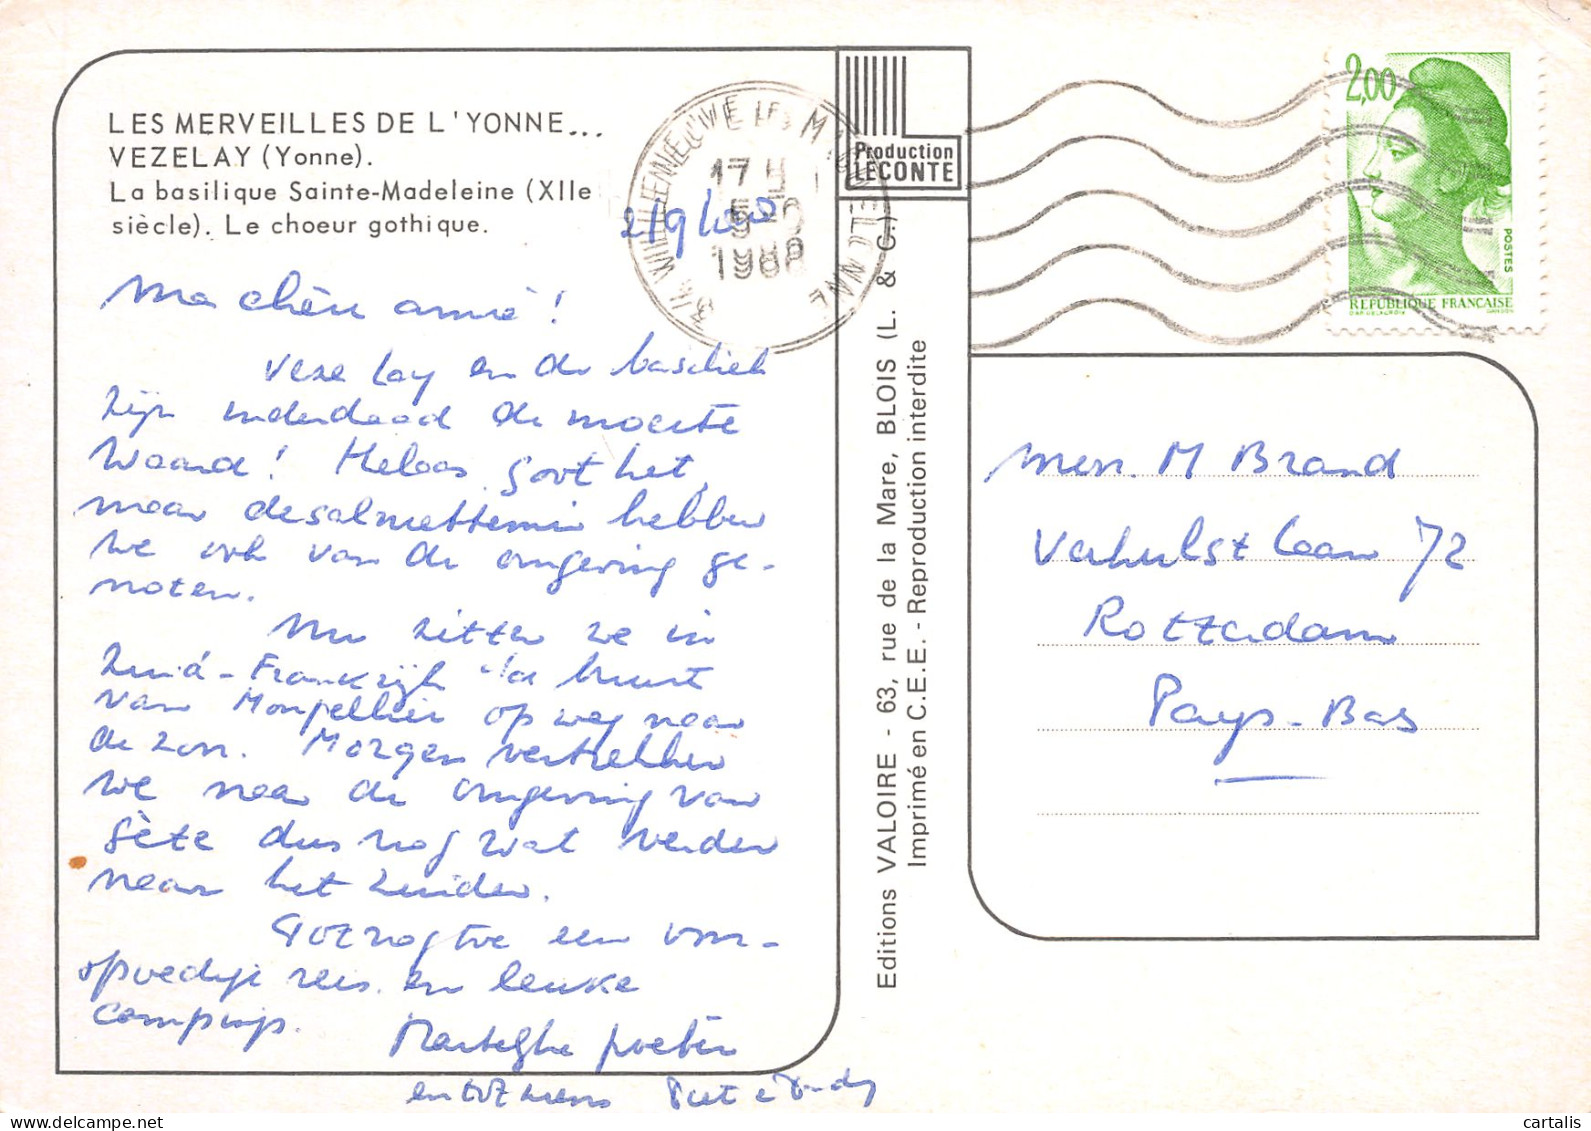 LES MERVEILLES DE L'YONNE...
VEZELAY (Yonne).
La basilique Sainte-Madeleine (XIIe
siècle). Le choeur gothique.
Ma chère amie!
Vezelay en de basiliek
zijn inderdaad de moeite
waard! Helaas goot het,
maar desalniettemin hebben
we ook van de omgeving ge-
noten.
Nu zitten we in
Zuid-Frankrijk de buurt
van Montpellier op weg naar
de zon. Morgen vertrekken
we naar de omgeving van
Sète dus nog wat verder
naar het zuiden.
Tot nog toe een voor-
spoedige reis en leuke
campings.
Hartelijke groeten
en tot ziens Piet
17 H
5-9
1988
34 VILLENEUVE LES MAGUELONNE
Production
LECONTE
Editions VALOIRE - 63, rue de la Mare, BLOIS (L. & C.)
Imprimé en C.E.E. - Reproduction interdite
2,00
POSTES
REPUBLIQUE FRANÇAISE
D'APRES DELACROIX GANDON
Mevr. M Brand
Verhulstlaan 72
Rotterdam
Pays-Bas
cartalis